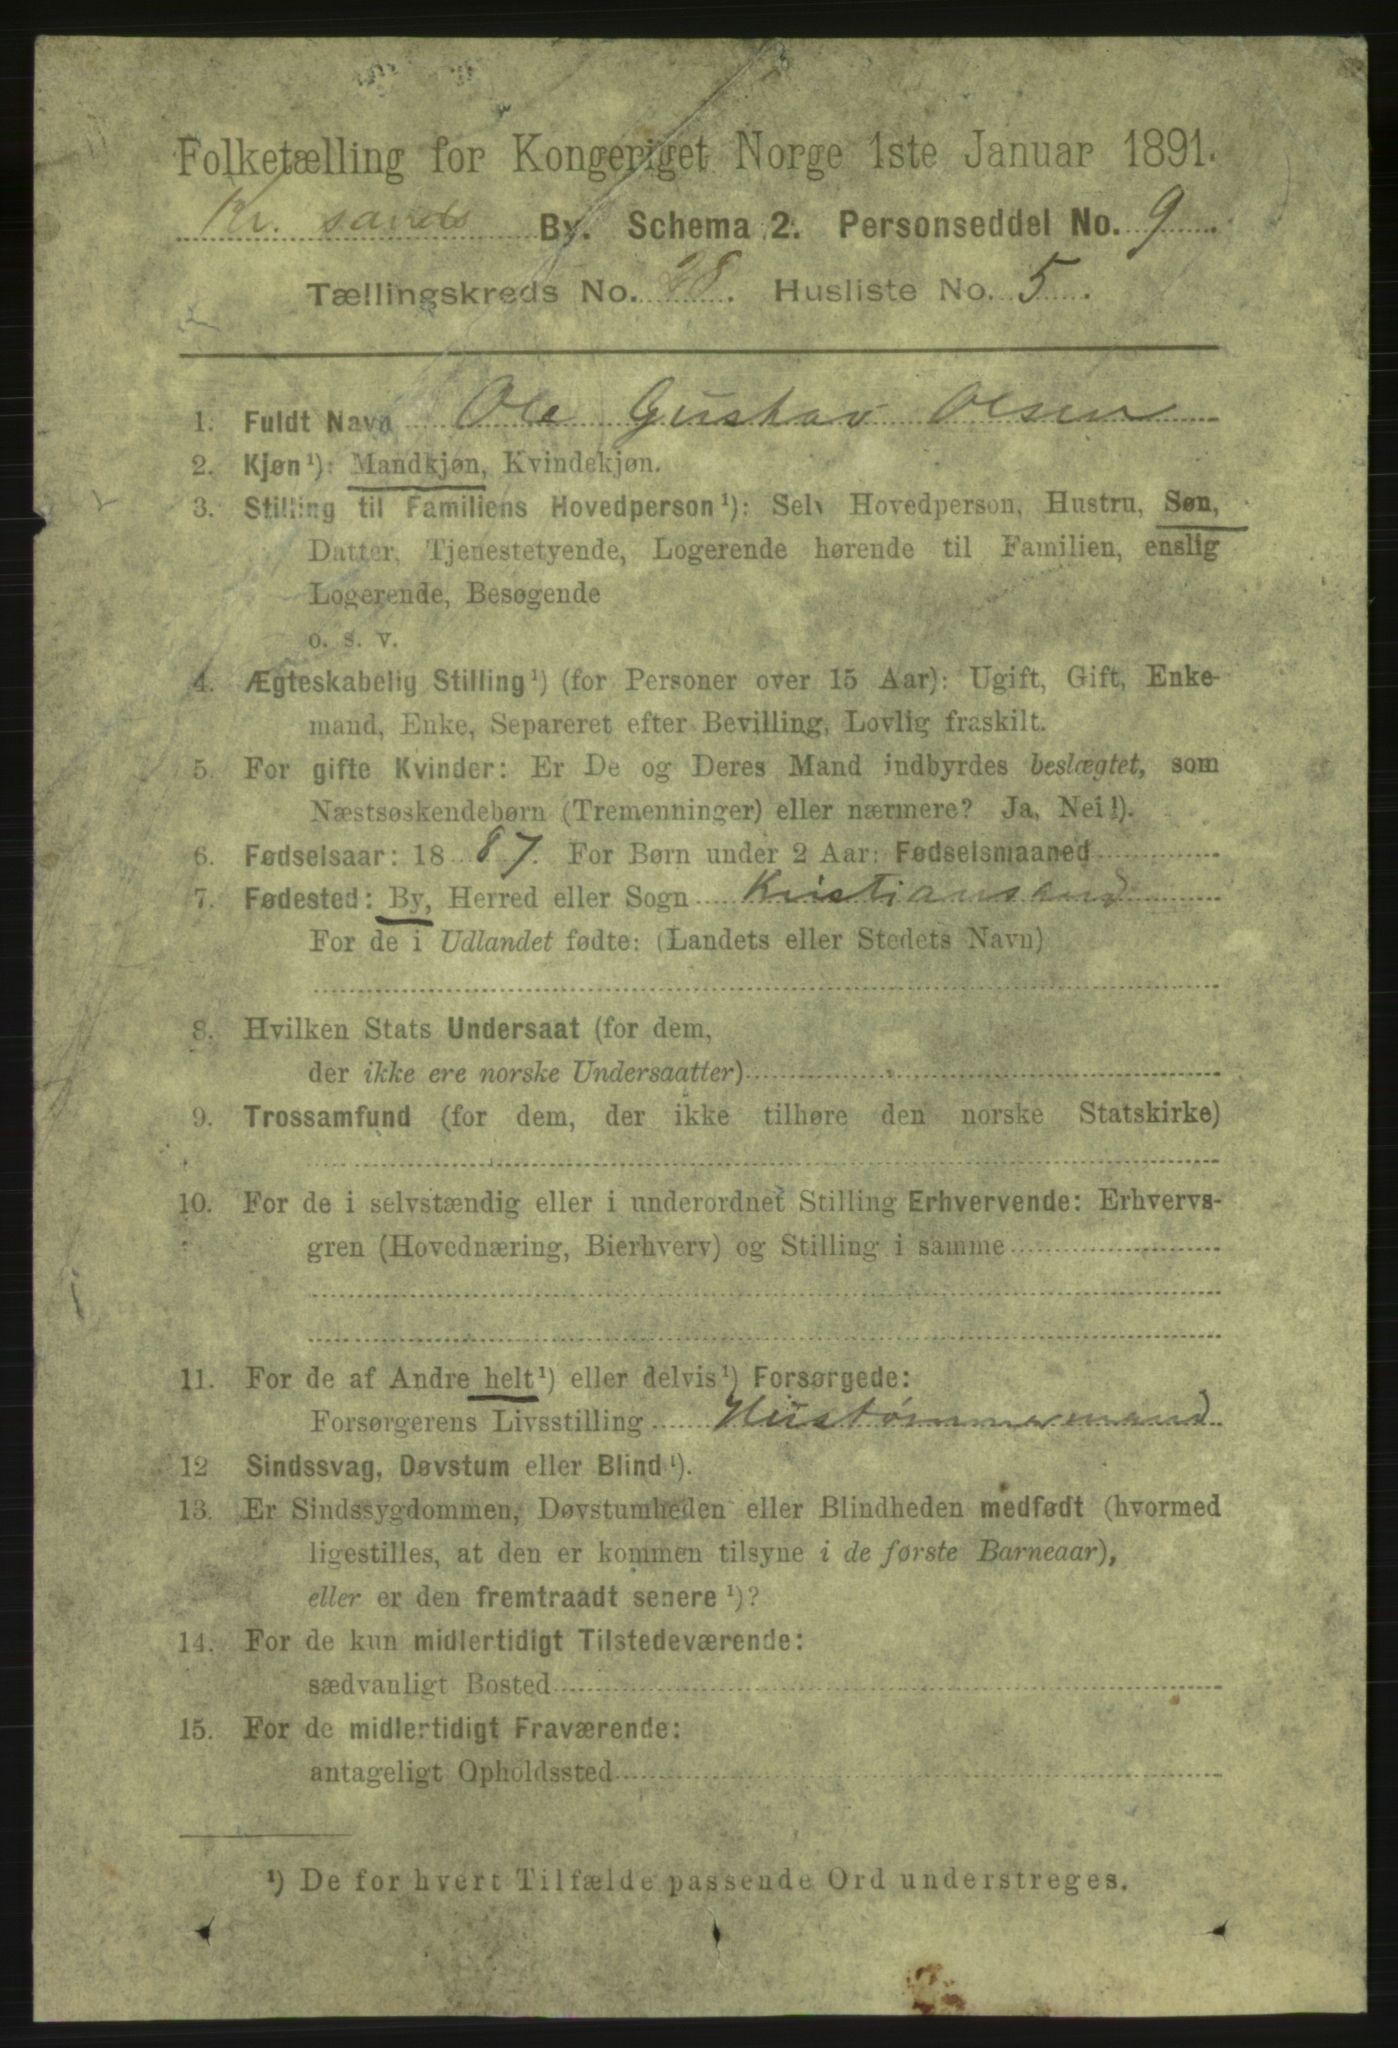 Folketælling for Kongeriget Norge 1ste Januar 1891.
Kr. sands By. Schema 2. Personseddel No. 9.
Tællingskreds No. 28. Husliste No. 5.
1. Fuldt Navn Ole Gustav Olsen
2. Kjøn¹): Mandkjøn, Kvindekjøn.
3. Stilling til Familiens Hovedperson¹): Selv Hovedperson, Hustru, Søn,
Datter, Tjenestetyende, Logerende hørende til Familien, enslig
Logerende, Besøgende
o. s. v.
4. Ægteskabelig Stilling¹) (for Personer over 15 Aar): Ugift, Gift, Enke-
mand, Enke, Separeret efter Bevilling, Lovlig fraskilt.
5. For gifte Kvinder: Er De og Deres Mand indbyrdes beslægtet, som
Næstsøskendebørn (Tremenninger) eller nærmere? Ja, Nei¹).
6. Fødselsaar: 1887. For Børn under 2 Aar: Fødselsmaaned
7. Fødested: By, Herred eller Sogn Kristiansand
For de i Udlandet fødte: (Landets eller Stedets Navn)
8. Hvilken Stats Undersaat (for dem,
der ikke ere norske Undersaatter)
9. Trossamfund (for dem, der ikke tilhøre den norske Statskirke)
10. For de i selvstændig eller i underordnet Stilling Erhvervende: Erhvervs-
gren (Hovednæring, Bierhverv) og Stilling i samme
11. For de af Andre helt¹) eller delvis¹) Forsørgede:
Forsørgerens Livsstilling Hustømmermand
12 Sindssvag, Døvstum eller Blind¹).
13. Er Sindssygdommen, Døvstumheden eller Blindheden medfødt (hvormed
ligestilles, at den er kommen tilsyne i de første Barneaar),
eller er den fremtraadt senere¹)?
14. For de kun midlertidigt Tilstedeværende:
sædvanligt Bosted
15. For de midlertidigt Fraværende:
antageligt Opholdssted
¹) De for hvert Tilfælde passende Ord understreges.